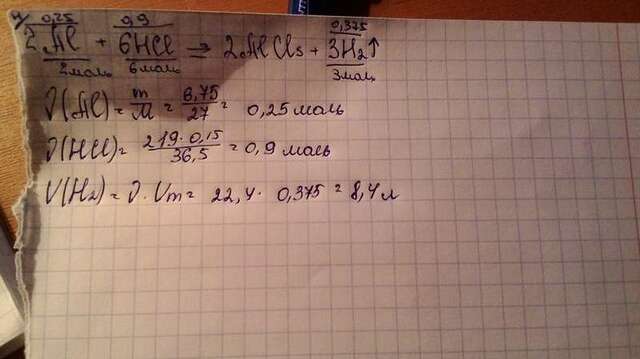 4) 0,25 0,9 0,375
2Al + 6HCl => 2AlCl₃ + 3H₂↑
2моль 6моль 3моль
ν(Al) = m/M = 6,75/27 = 0,25 моль
ν(HCl) = 219·0,15/36,5 = 0,9 моль
V(H₂) = ν·Vm = 22,4 · 0,375 = 8,4 л